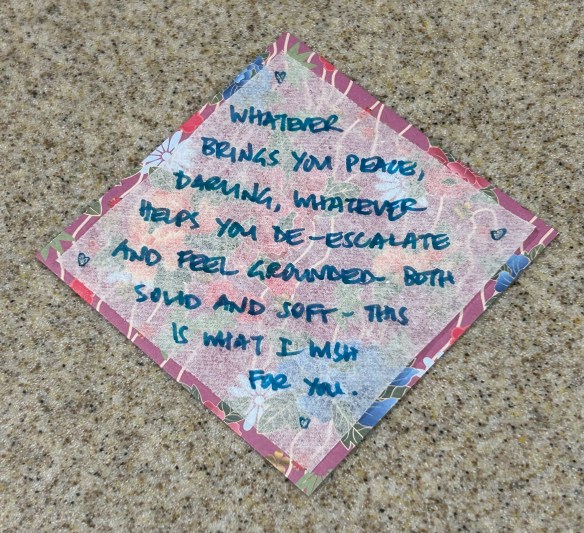 WHATEVER
BRINGS YOU PEACE,
DARLING, WHATEVER
HELPS YOU DE-ESCALATE
AND FEEL GROUNDED BOTH
SOLID AND SOFT - THIS
IS WHAT I WISH
FOR YOU.